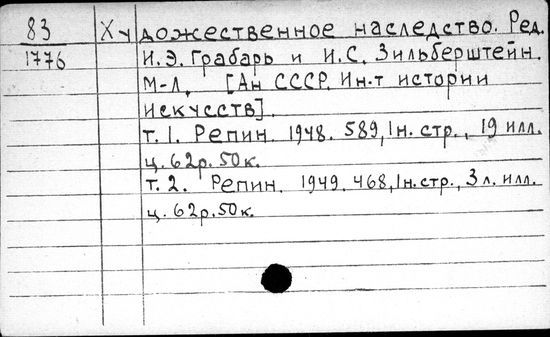 83 Художественное наследство. Ред.
1776 И. Э. Грабарь и И. С. Зильберштейн.
М-Л. [Ан СССР. Ин-т истории
искусств].
т. 1. Репин. 1948. 589, 1н. стр., 19 илл.
ц. 62р. 50к.
т. 2. Репин. 1949. 468, 1н. стр., 3 л. илл.
ц. 62р. 50к.